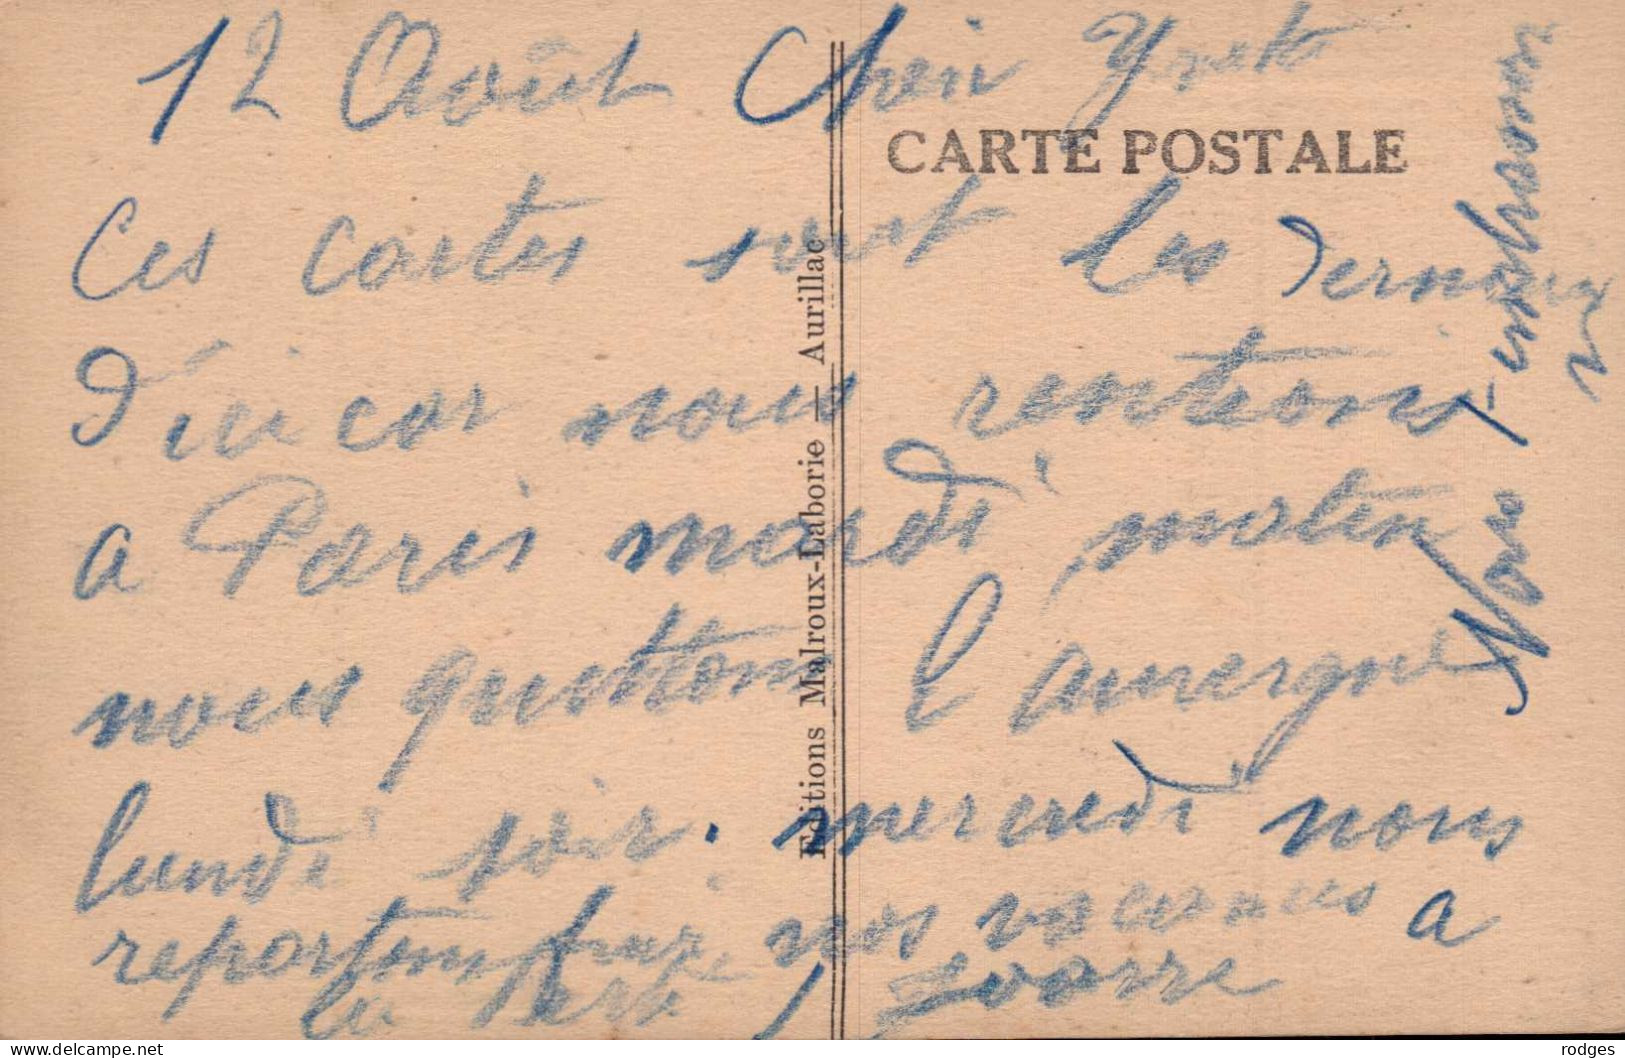 12 Août Cher
CARTE POSTALE
Ces cartes sont les derniers
d'ici car nous rentrons
a Paris mardi matin
nous quittons l'auvergne
lundi soir. mercredi nous
repartons finir nos vacances a
la
Nous t'embrassons
Editions Malroux-Laborie — Aurillac
rodges delcampe.net